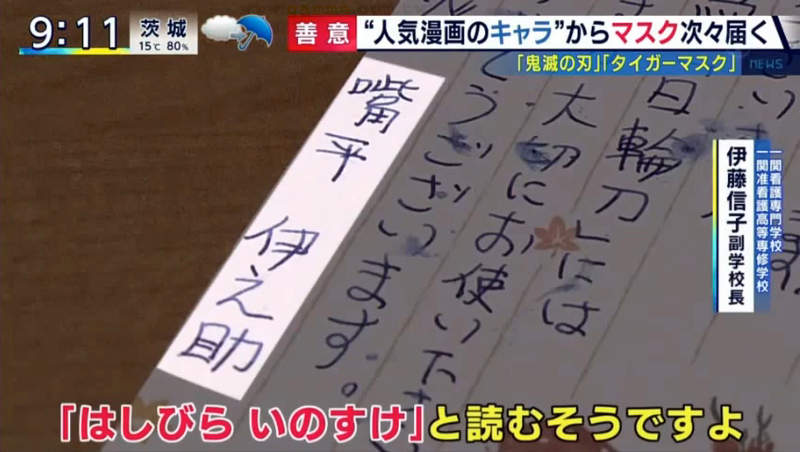 9:11
茨城
15℃ 80%
善意
“人気漫画のキャラ”からマスク次々届く
「鬼滅の刃」「タイガーマスク」
NEWS
一関看護専門学校
一関准看護高等専修学校
伊藤信子副学校長
日輪刀」には
大切にお使い下さ
うございます。
嘴平 伊之助
「はしびら いのすけ」と読むそうですよ